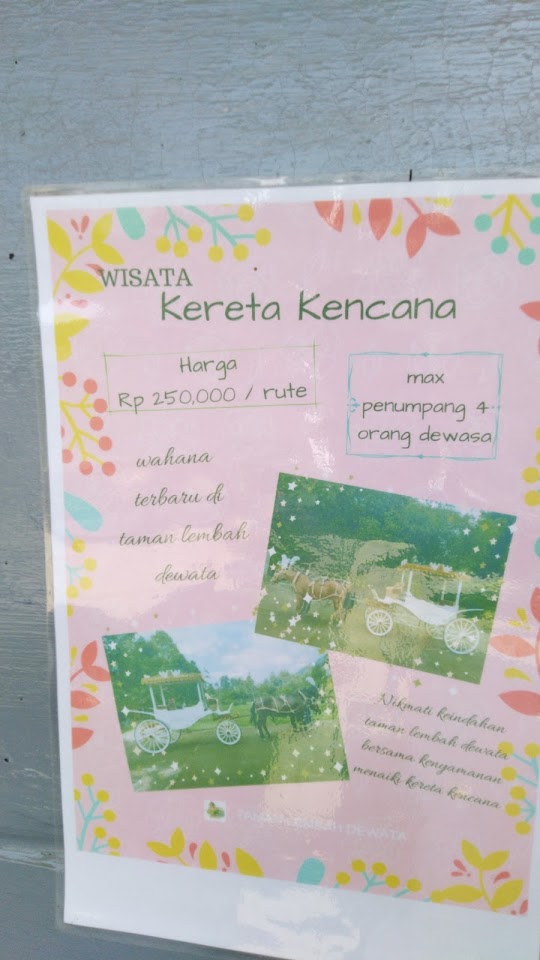 WISATA
Kereta Kencana
Harga
Rp 250,000 / rute
max
penumpang 4
orang dewasa
wahana
terbaru di
taman lembah
dewata
Nikmati keindahan
taman lembah dewata
bersama kenyamanan
menaiki kereta kencana
TAMAN LEMBAH DEWATA